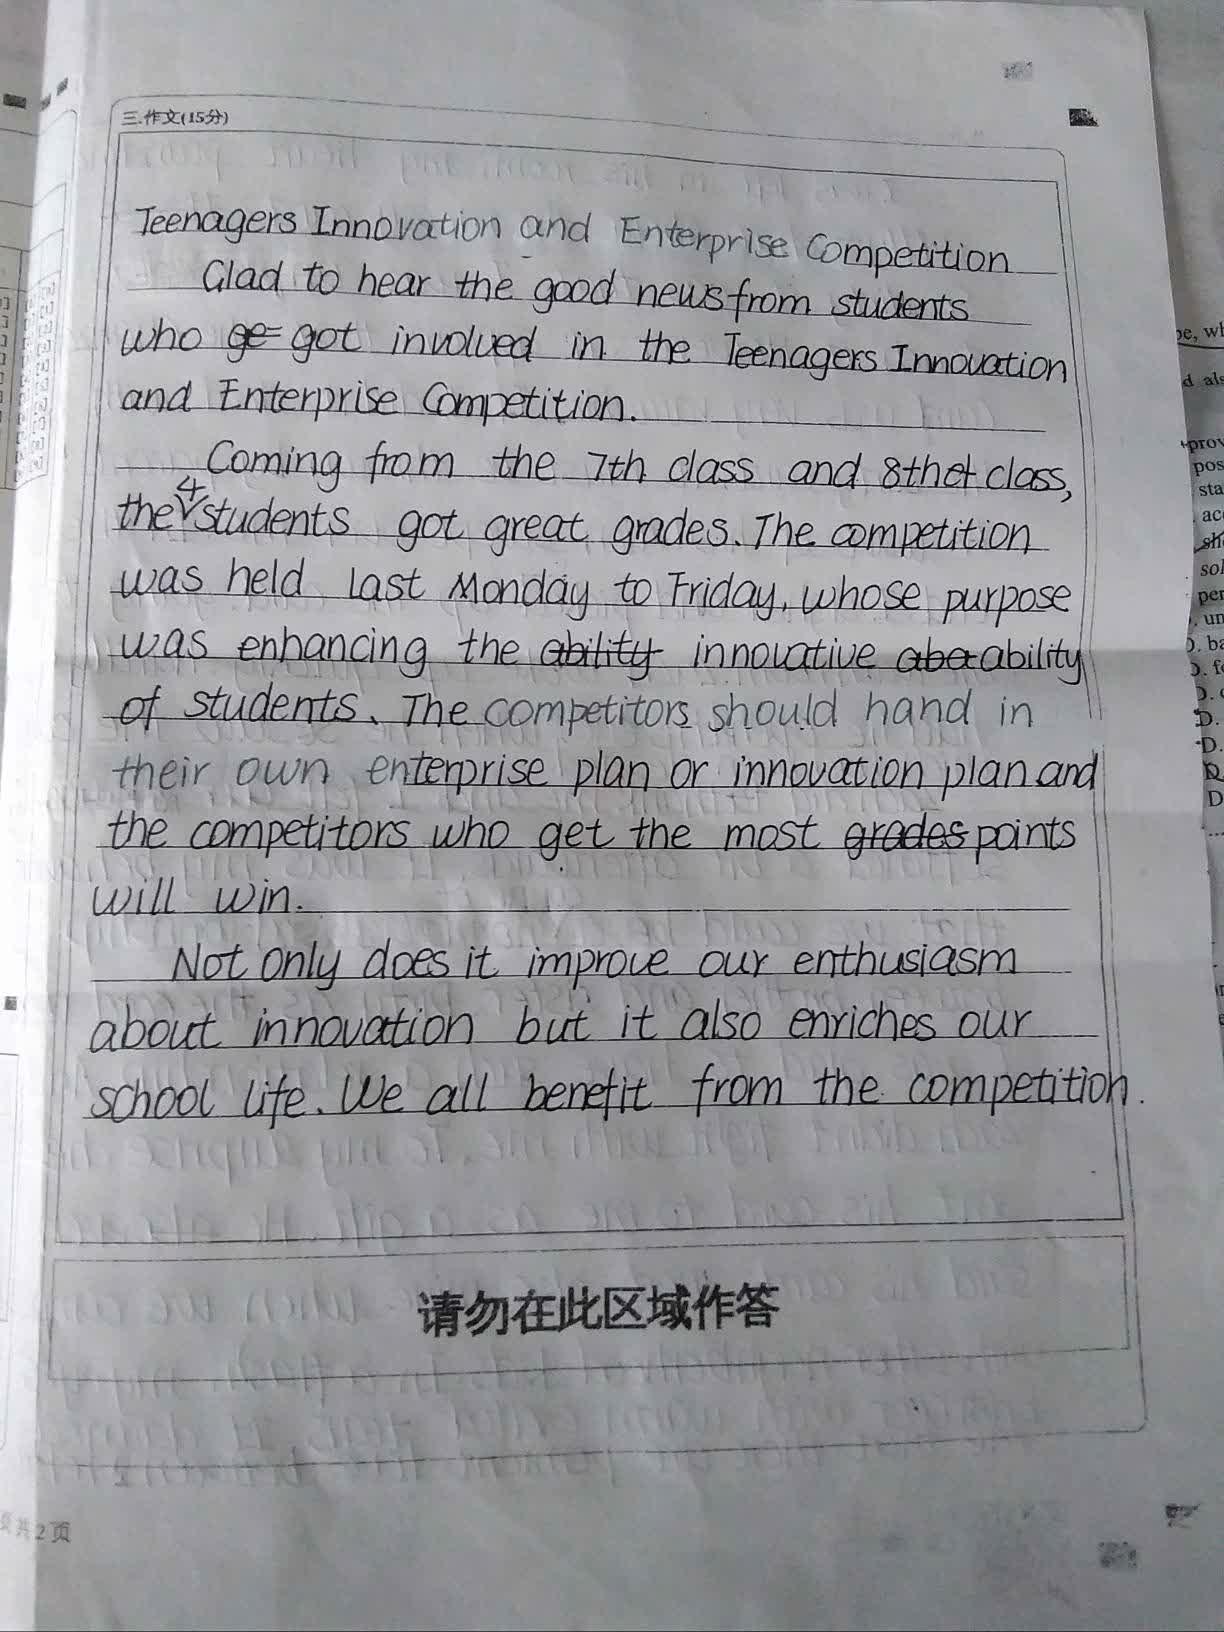 三.作文(15分)
Teenagers Innovation and Enterprise Competition
Glad to hear the good news from students
who ge got involved in the Teenagers Innovation
and Enterprise Competition.
Coming from the 7th class and 8th class,
the 4 students got great grades. The competition
was held last Monday to Friday, whose purpose
was enhancing the ability innovative aba ability
of students. The competitors should hand in
their own enterprise plan or innovation plan and
the competitors who get the most grades points
will win.
Not only does it improve our enthusiasm
about innovation but it also enriches our
school life. We all benefit from the competition.
请勿在此区域作答
共2页